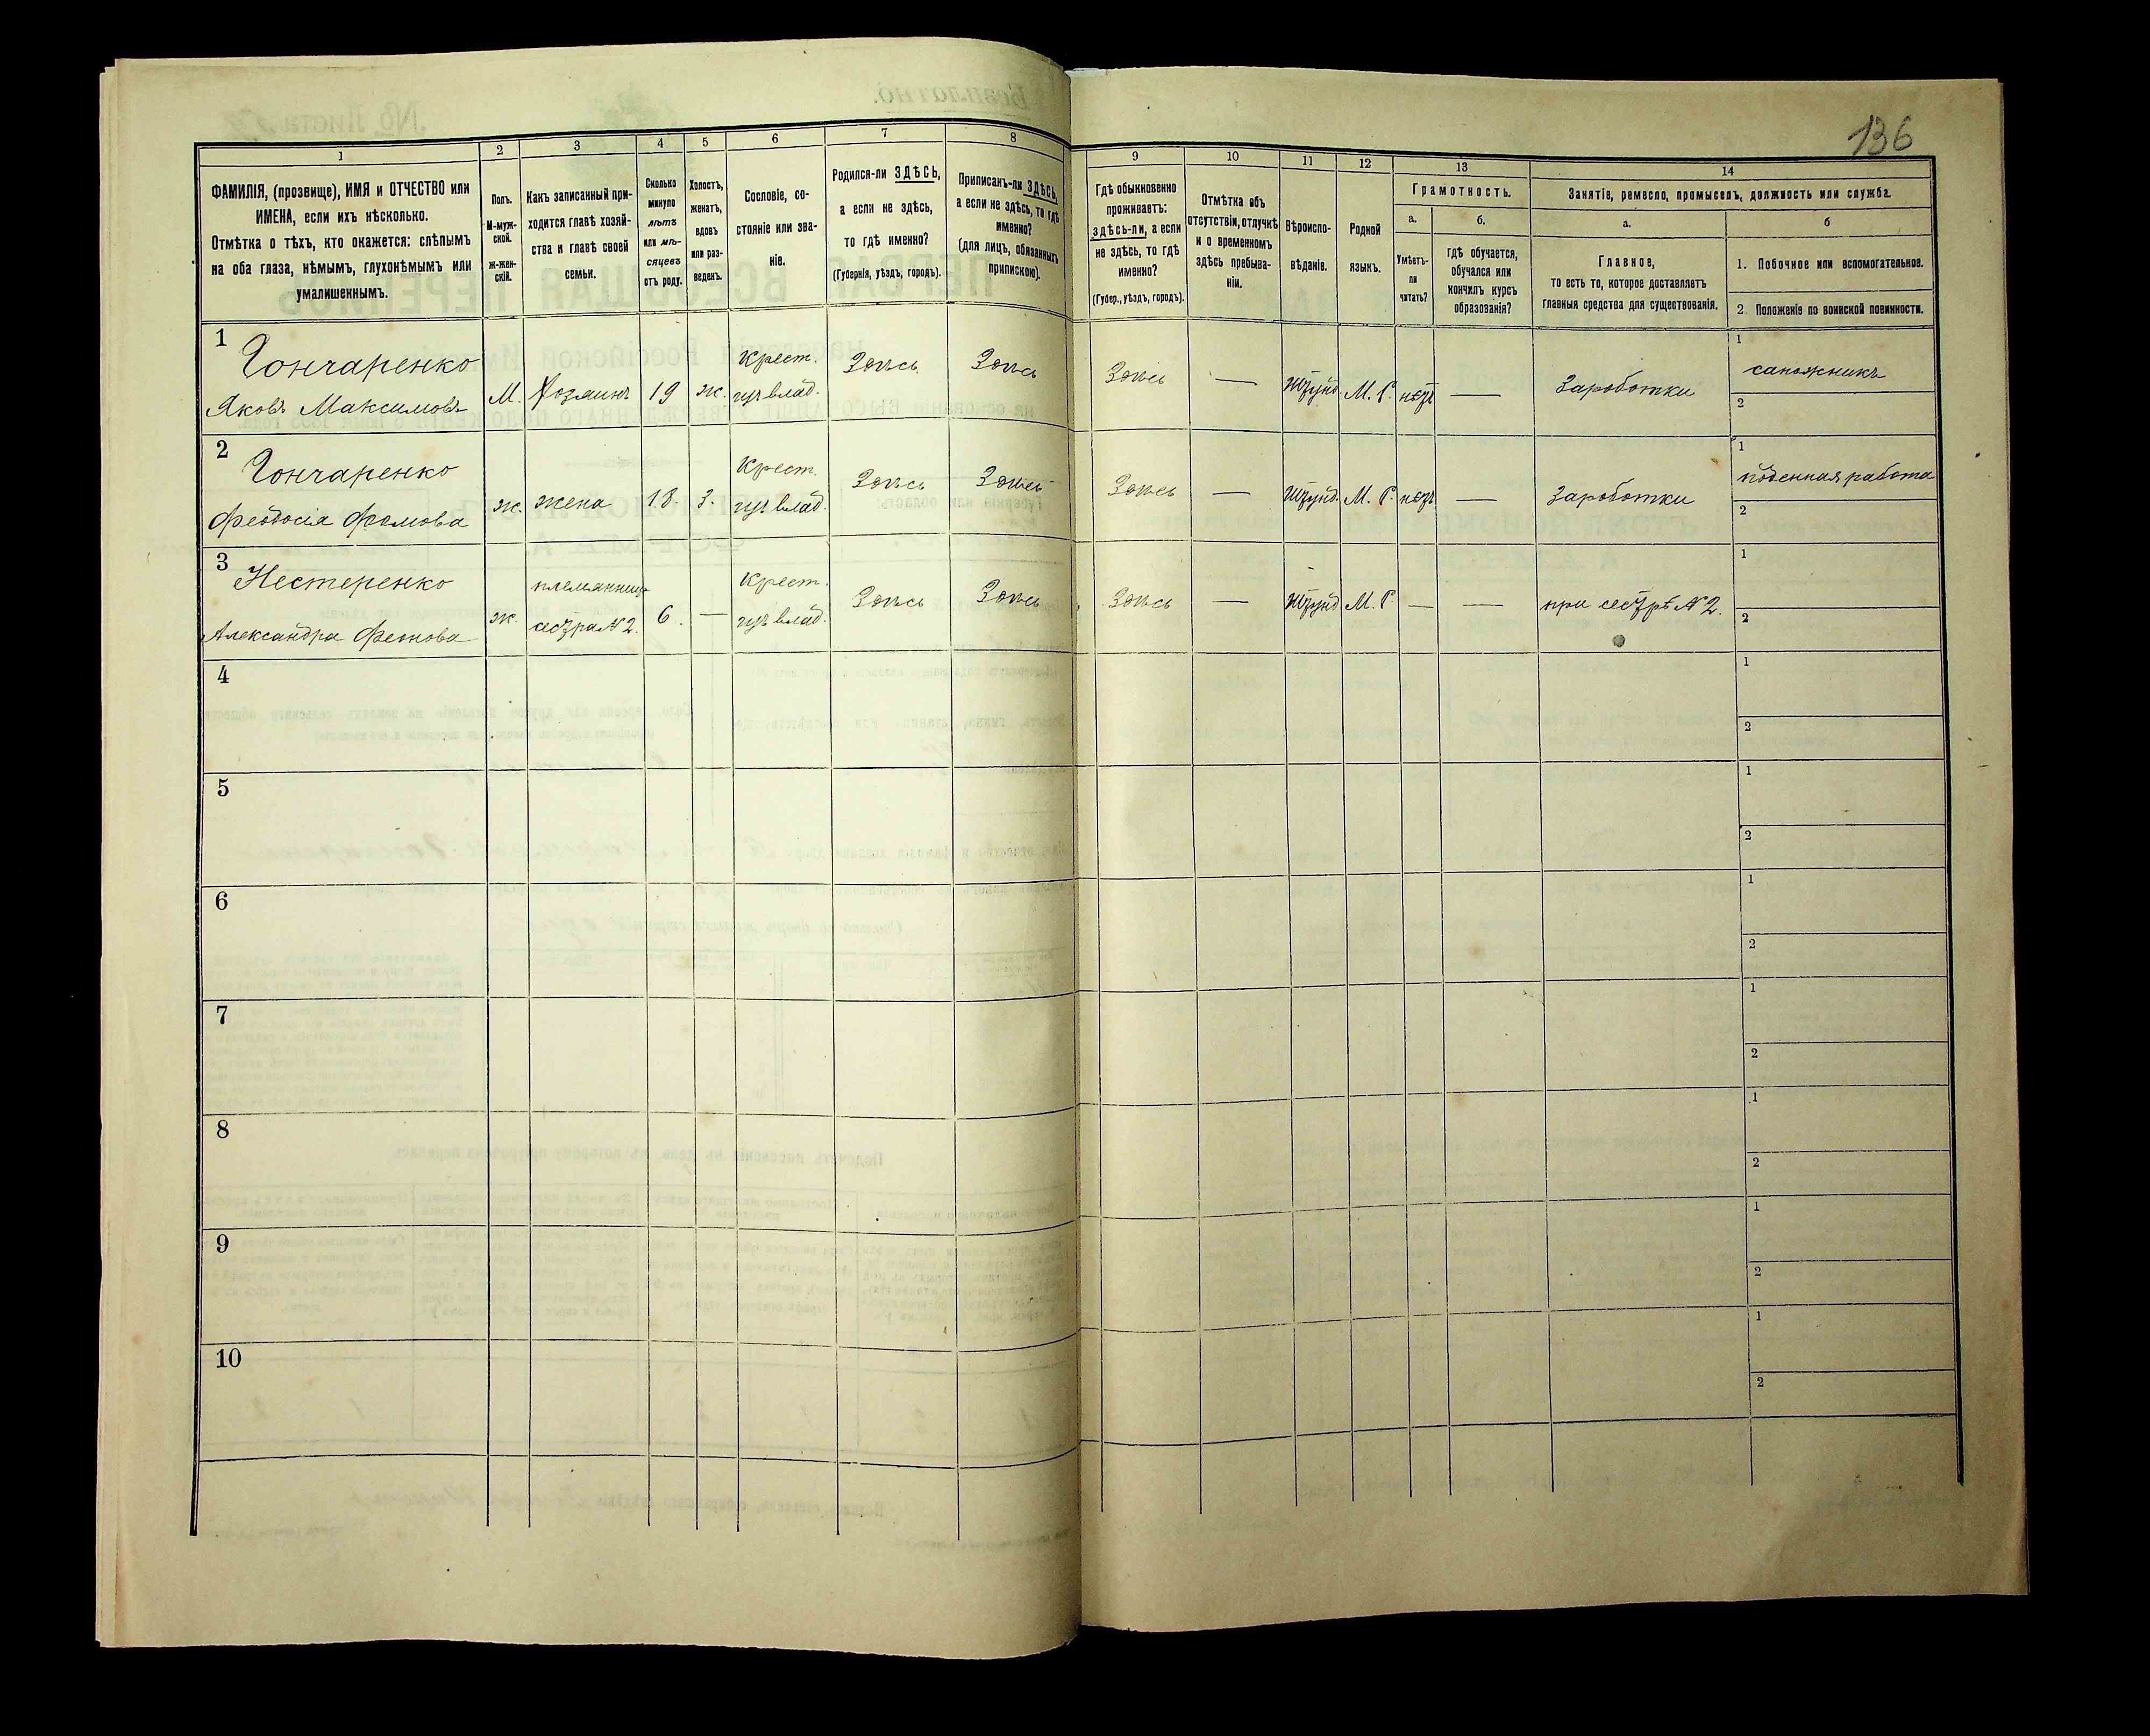 136
1
ФАМИЛІЯ, (прозвище), ИМЯ и ОТЧЕСТВО или
ИМЕНА, если ихъ нѣсколько.
Отмѣтка о тѣхъ, кто окажется: слѣпымъ
на оба глаза, нѣмымъ, глухонѣмымъ или
умалишеннымъ.
2
Полъ.
М-муж-
ской.
ж-жен-
скій.
3
Какъ записанный при-
ходится главѣ хозяй-
ства и главѣ своей
семьи.
4
Сколько
минуло
лѣтъ
или мѣ-
сяцевъ
отъ роду.
5
Холостъ,
женатъ,
вдовъ
или раз-
веденъ.
6
Сословіе, со-
стояніе или зва-
ніе.
7
Родился-ли ЗДѢСЬ,
а если не здѣсь,
то гдѣ именно?
(Губернія, уѣздъ, городъ).
8
Приписанъ-ли ЗДѢСЬ,
а если не здѣсь, то гдѣ
именно?
(для лицъ, обязанныхъ
припискою).
9
Гдѣ обыкновенно
проживаетъ:
здѣсь-ли, а если
не здѣсь, то гдѣ
именно?
(Губер., уѣздъ, городъ).
10
Отмѣтка объ
отсутствіи, отлучкѣ
и о временномъ
здѣсь пребыва-
ніи.
11
Вѣроиспо-
вѣданіе.
12
Родной
языкъ.
13
Грамотность.
а.
Умѣетъ-
ли
читать?
б.
гдѣ обучается,
обучался или
кончилъ курсъ
образованія?
14
Занятіе, ремесло, промыселъ, должность или служба.
а.
Главное,
то есть то, которое доставляетъ
главныя средства для существованія.
б
1. Побочное или вспомогательное.
2. Положеніе по воинской повинности.
1
Гончаренко
Яковъ Максимовъ
М.
Хозяинъ
19
ж.
Крест.
изъ влад.
Здѣсь
Здѣсь
Здѣсь
—
Штунд.
М. Р.
нѣтъ
—
Зароботки
1
сапожникъ
2
2
Гончаренко
Феодосія Фомова
ж.
жена
18.
з.
Крест.
изъ влад.
Здѣсь
Здѣсь
Здѣсь
—
Штунд.
М. Р.
нѣтъ
—
Зароботки
1
поденная работа
2
3
Нестеренко
Александра
ж.
племянница
сестра № 2.
6.
—
Крест.
изъ влад.
Здѣсь
Здѣсь
Здѣсь
—
Штунд
М. Р.
—
—
при сестрѣ № 2.
1
2
4
1
2
5
1
2
6
1
2
7
1
2
8
1
2
9
1
2
10
1
2